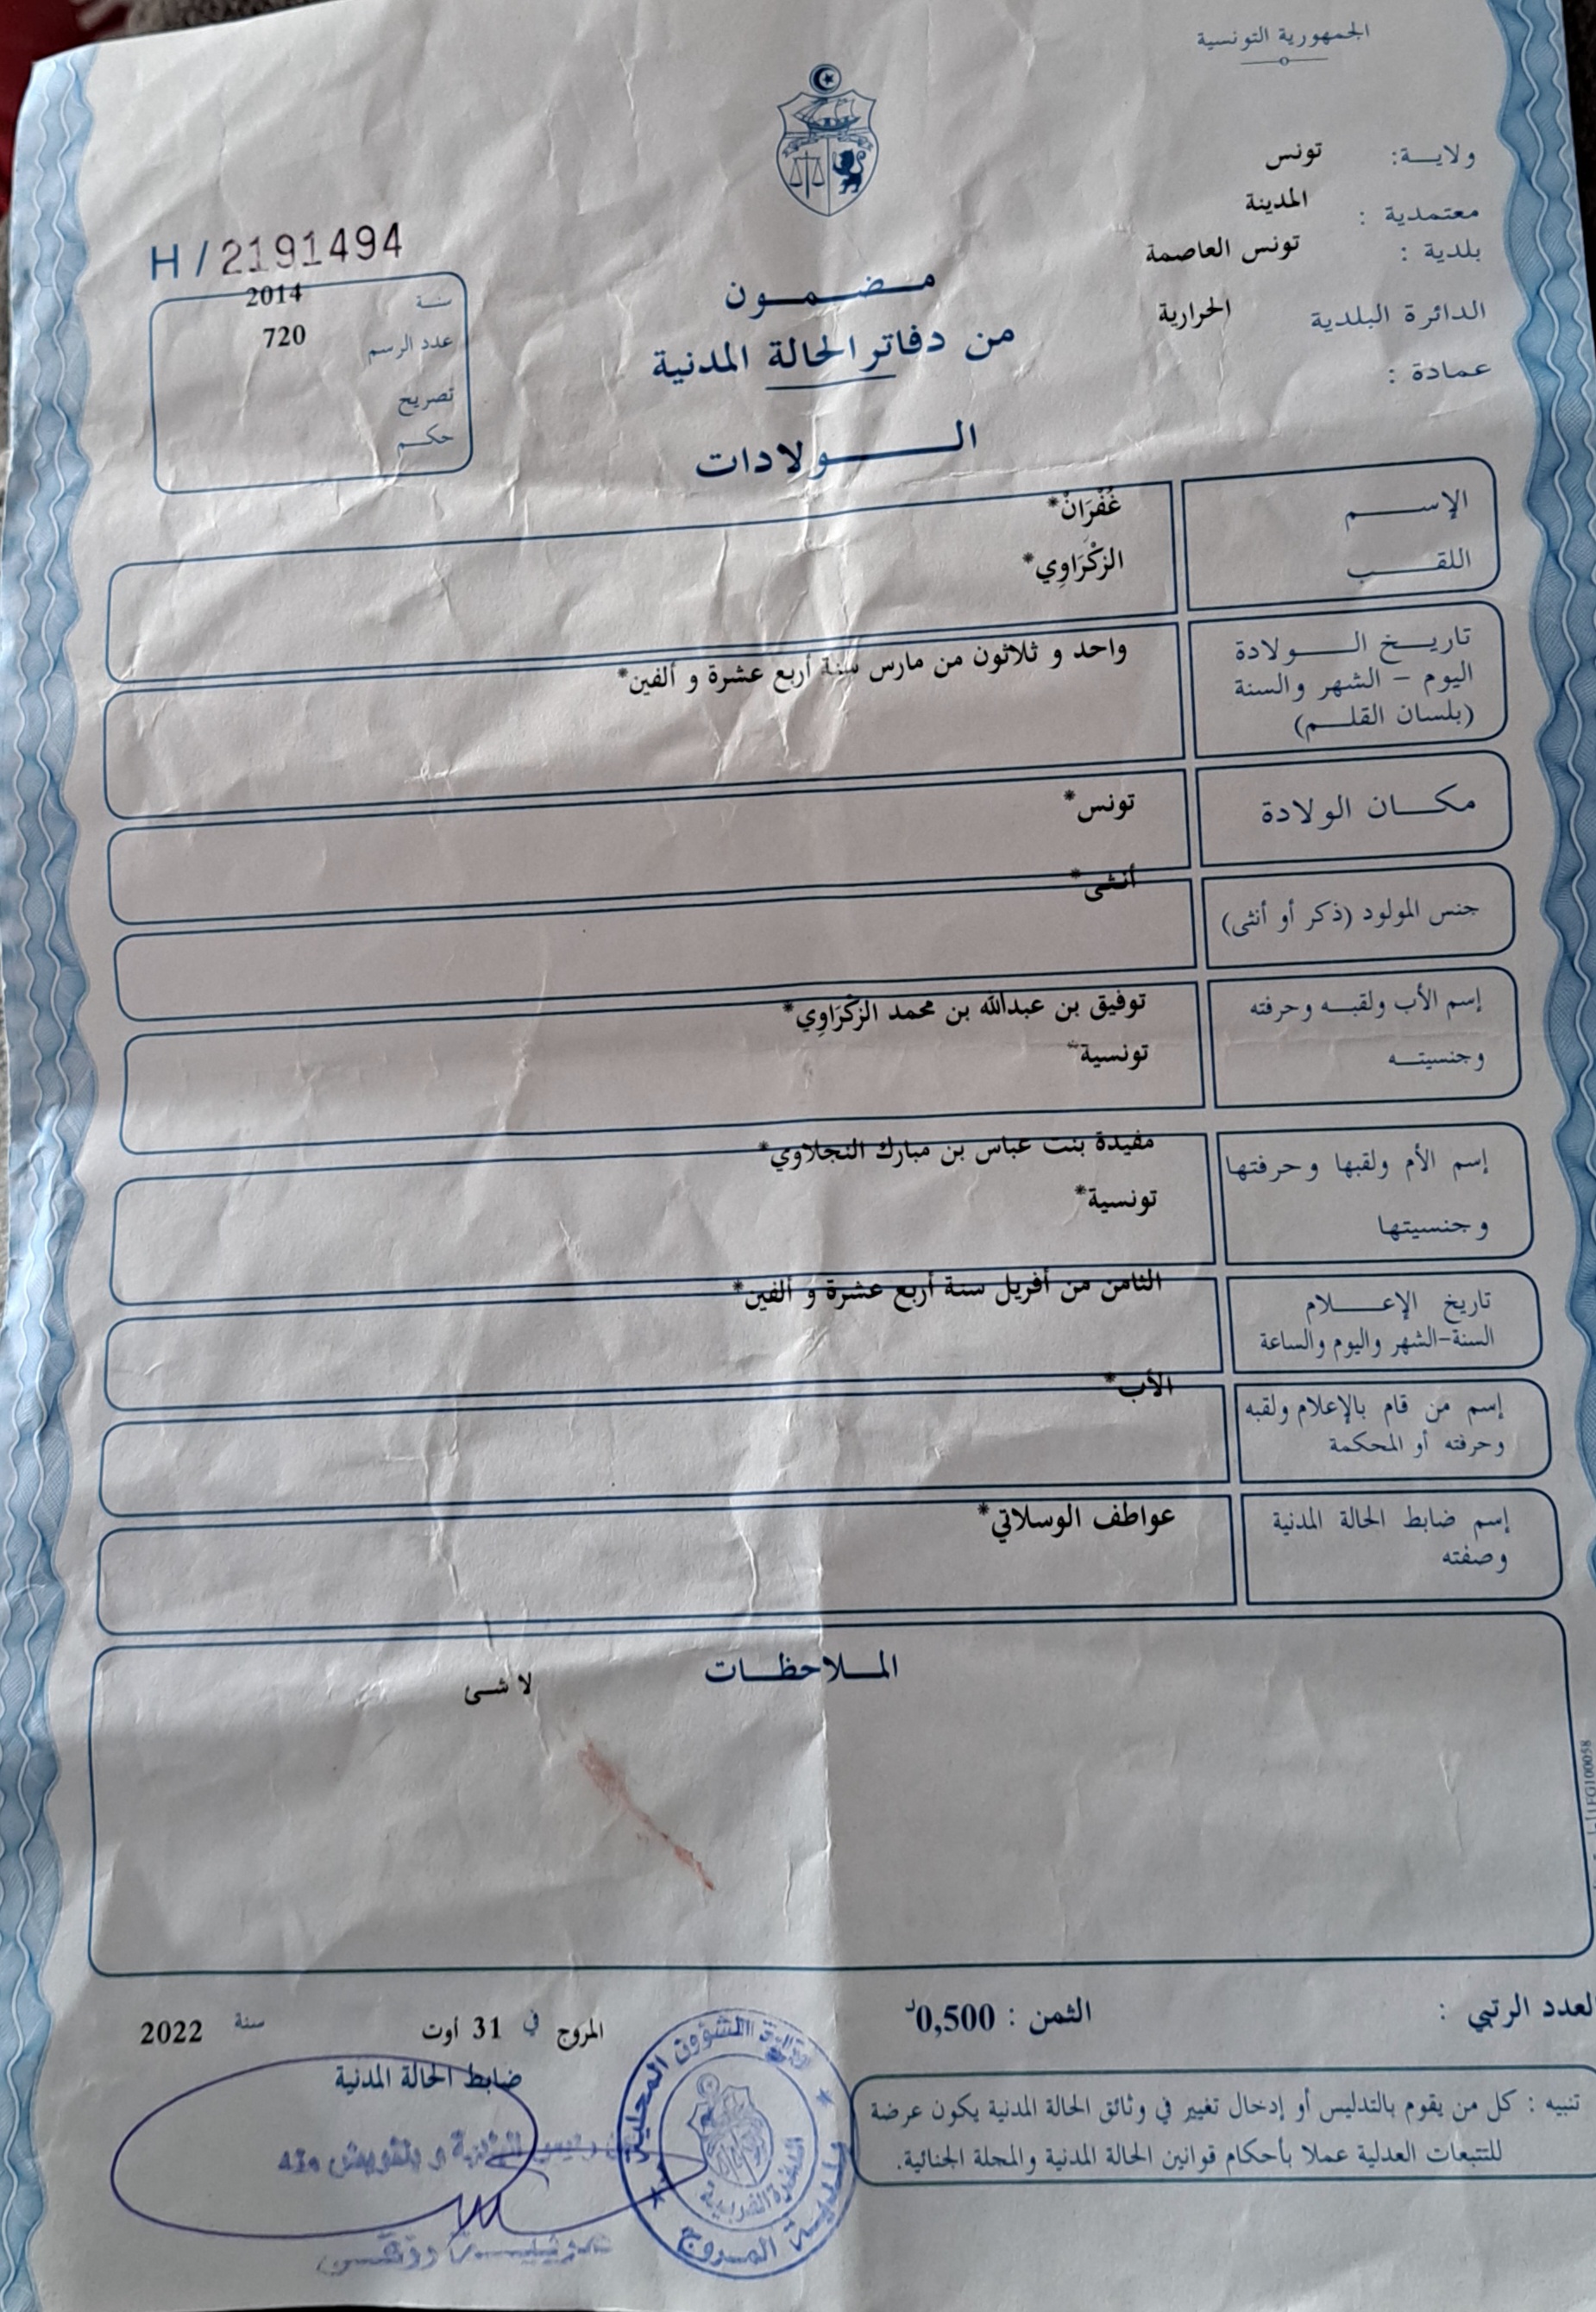 الجمهورية التونسية
ولاية: تونس
معتمدية : المدينة
بلدية : تونس العاصمة
الدائرة البلدية الحرارية
عمادة :
H / 2191494
سنة 2014
عدد الرسم 720
تصريح
حكم
مضمون
من دفاتر الحالة المدنية
الولادات
الإسم غُفْرَانْ*
اللقب الزكْرَاوِي*
تاريخ الولادة
اليوم - الشهر والسنة
(بلسان القلم)
واحد و ثلاثون من مارس سنة أربع عشرة و ألفين*
مكان الولادة تونس*
جنس المولود (ذكر أو أنثى) أنثى*
إسم الأب ولقبه وحرفته توفيق بن عبدالله بن محمد الزكْرَاوِي*
وجنسيته تونسية*
إسم الأم ولقبها وحرفتها مفيدة بنت عباس بن مبارك النجلاوي*
وجنسيتها تونسية*
تاريخ الإعلام
السنة-الشهر واليوم والساعة
الثامن من أفريل سنة أربع عشرة و ألفين*
إسم من قام بالإعلام ولقبه
وحرفته أو المحكمة
الأب*
إسم ضابط الحالة المدنية
وصفته
عواطف الوسلاتي*
الملاحظات
لا شئ
العدد الرتبي :
الثمن : 0,500د
المروج في 31 أوت سنة 2022
ضابط الحالة المدنية
تنبيه : كل من يقوم بالتدليس أو إدخال تغيير في وثائق الحالة المدنية يكون عرضة
للتتبعات العدلية عملا بأحكام قوانين الحالة المدنية والمجلة الجنائية.
الشؤون المحلية
بلدية المروج
و بتفويض منه